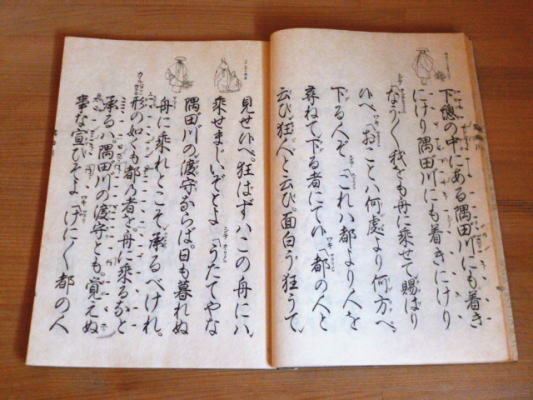 下總の中にある隅田川にも着き
にけり隅田川にも着きにけり
なう〱我をも舟に乗せて賜はり
候へ「おことハ何處より何方へ
下る人ぞ「これハ都より人を
尋ねて下る者にて候「都の人と
云ひ狂人と云ひ面白う狂うて
見せ候へ。狂はずハこの舟にハ
乗せまじいぞとよ「うたてやな
隅田川の渡守ならば。日も暮れぬ
舟に乗れとこそ。承るべけれ。
形の如くも都乃者を。舟に乗るなと
承るハ隅田川の渡守とも。覚えぬ
事な宣ひそよ「げに〱都の人